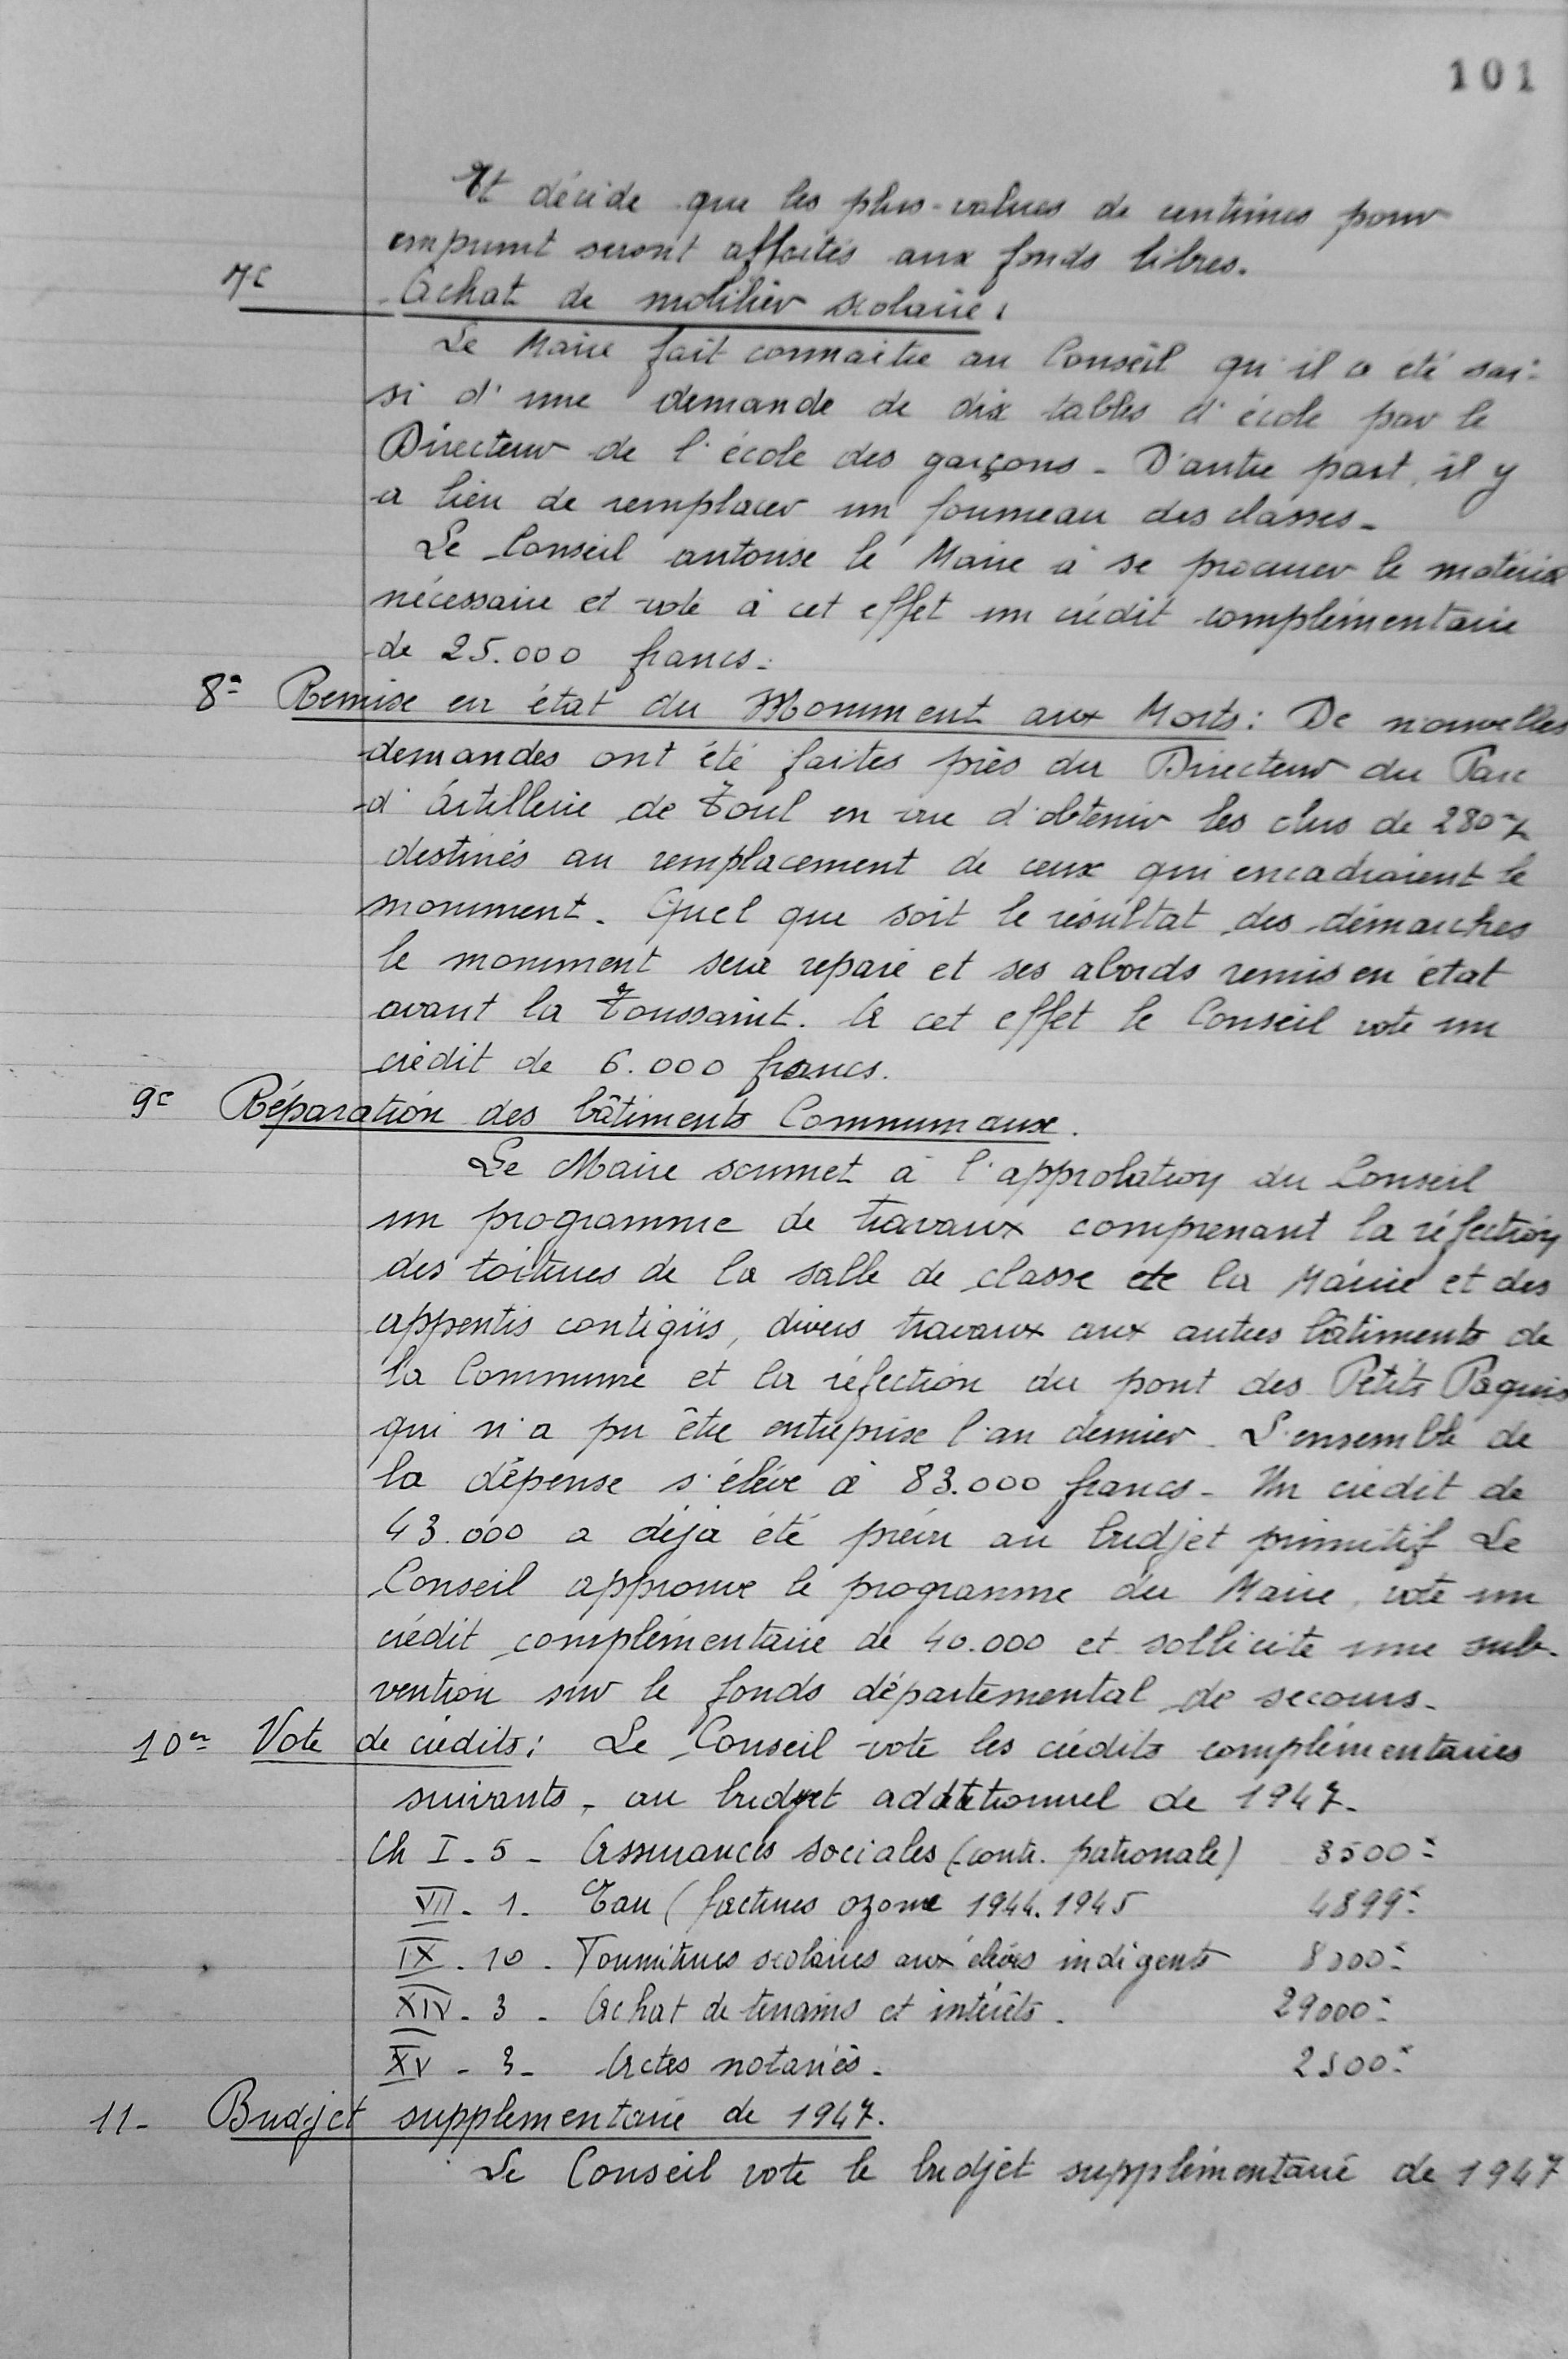 101
Et décide que les plus-values de centimes pour
emprunt seront affectés aux fonds libres.
7e Achat de mobilier scolaire :
Le Maire fait connaître au Conseil qu'il a été sai-
si d'une demande de dix tables d'école par le
Directeur de l'école des garçons - D'autre part, il y
a lieu de remplacer un fourneau des classes -
Le Conseil autorise le Maire à se procurer le matériel
nécessaire et vote à cet effet un crédit complémentaire
de 25.000 francs.
8e Remise en état du Monument aux Morts : De nouvelles
demandes ont été faites près du Directeur du Parc
d'Artillerie de Toul en vue d'obtenir les obus de 280
destinés au remplacement de ceux qui encadraient le
monument. Quel que soit le résultat des démarches
le monument sera réparé et ses abords remis en état
avant la Toussaint. A cet effet le Conseil vote un
crédit de 6.000 francs.
9e Réparation des bâtiments Communaux.
Le Maire soumet à l'approbation du Conseil
un programme de travaux comprenant la réfection
des toitures de la salle de classe de la Mairie et des
appentis contigüs, divers travaux aux autres bâtiments de
la Commune et la réfection du pont des Petits Paquis
qui n'a pu être entreprise l'an dernier. L'ensemble de
la dépense s'élève à 83.000 francs - Un crédit de
43.000 a déjà été prévu au budjet primitif Le
Conseil approuve le programme du Maire, vote un
crédit complémentaire de 40.000 et sollicite une sub-
vention sur le fonds départemental de secours -
10e Vote de crédits : Le Conseil vote les crédits complémentaires
suivants - au budget additionnel de 1947 -
Ch I - 5 - Assurances sociales (contr. patronale) 3500
VII - 1 - Eau (factures ozone 1944.1945 4899
IX - 10 - Fournitures scolaires aux élèves indigents 8000
XIV - 3 - Achat de terrains et intérêts - 29000
XV - 3 - Actes notariés - 2500
11 - Budjet supplementaire de 1947.
Le Conseil vote le budjet supplémentaire de 1947